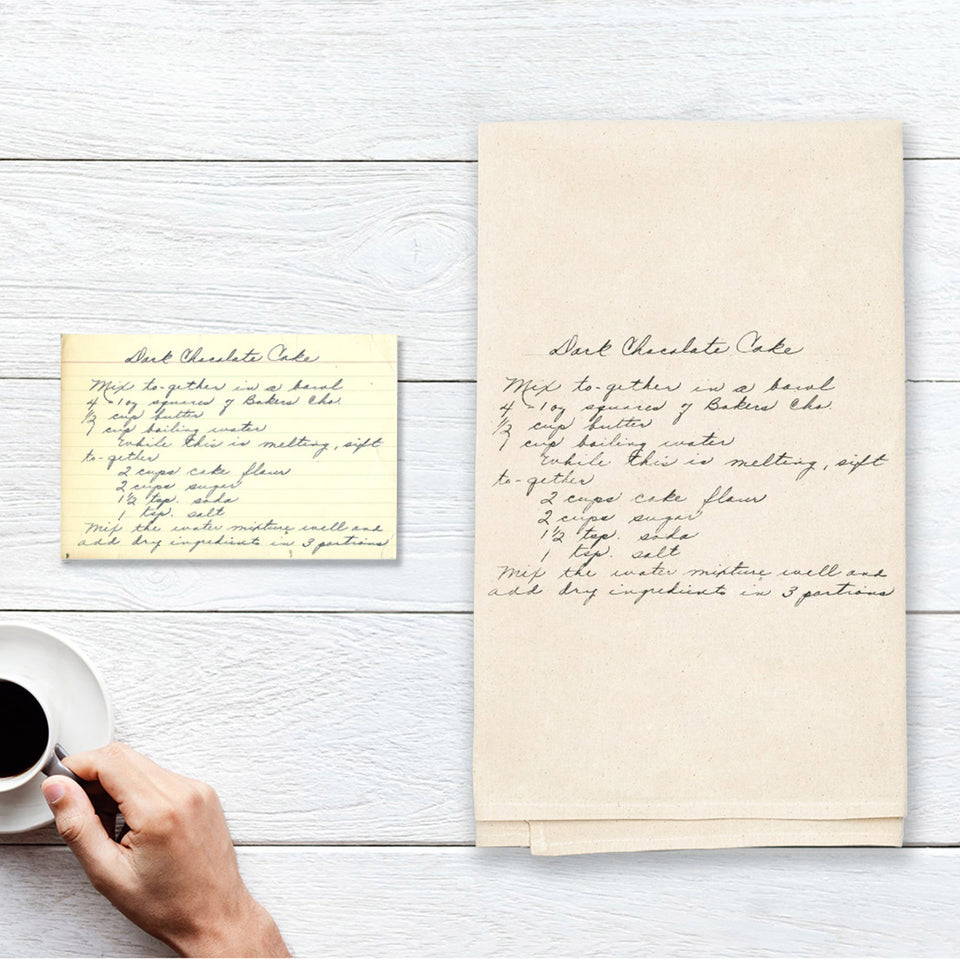 Dark Chocolate Cake
Mix to-gether in a bowl
4 - 1oz squares of Bakers Cho.
1/2 cup butter
1 cup boiling water
While this is melting, sift
to-gether
2 cups cake flour
2 cups sugar
1 1/2 tsp. soda
1 tsp. salt
Mix the water mixture well and
add dry ingredients in 3 portions
Dark Chocolate Cake
Mix to-gether in a bowl
4 - 1oz squares of Bakers Cho.
1/2 cup butter
1 cup boiling water
While this is melting, sift
to-gether
2 cups cake flour
2 cups sugar
1 1/2 tsp. soda
1 tsp. salt
Mix the water mixture well and
add dry ingredients in 3 portions